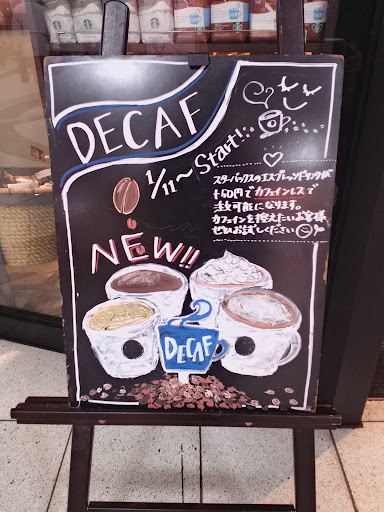 DECAF
1/11〜Start!!
スターバックスのエスプレッソドリンクが
+60円でカフェインレスで
注文可能になります。
カフェインを控えたいお客様
ぜひお試しください
NEW!!
DECAF